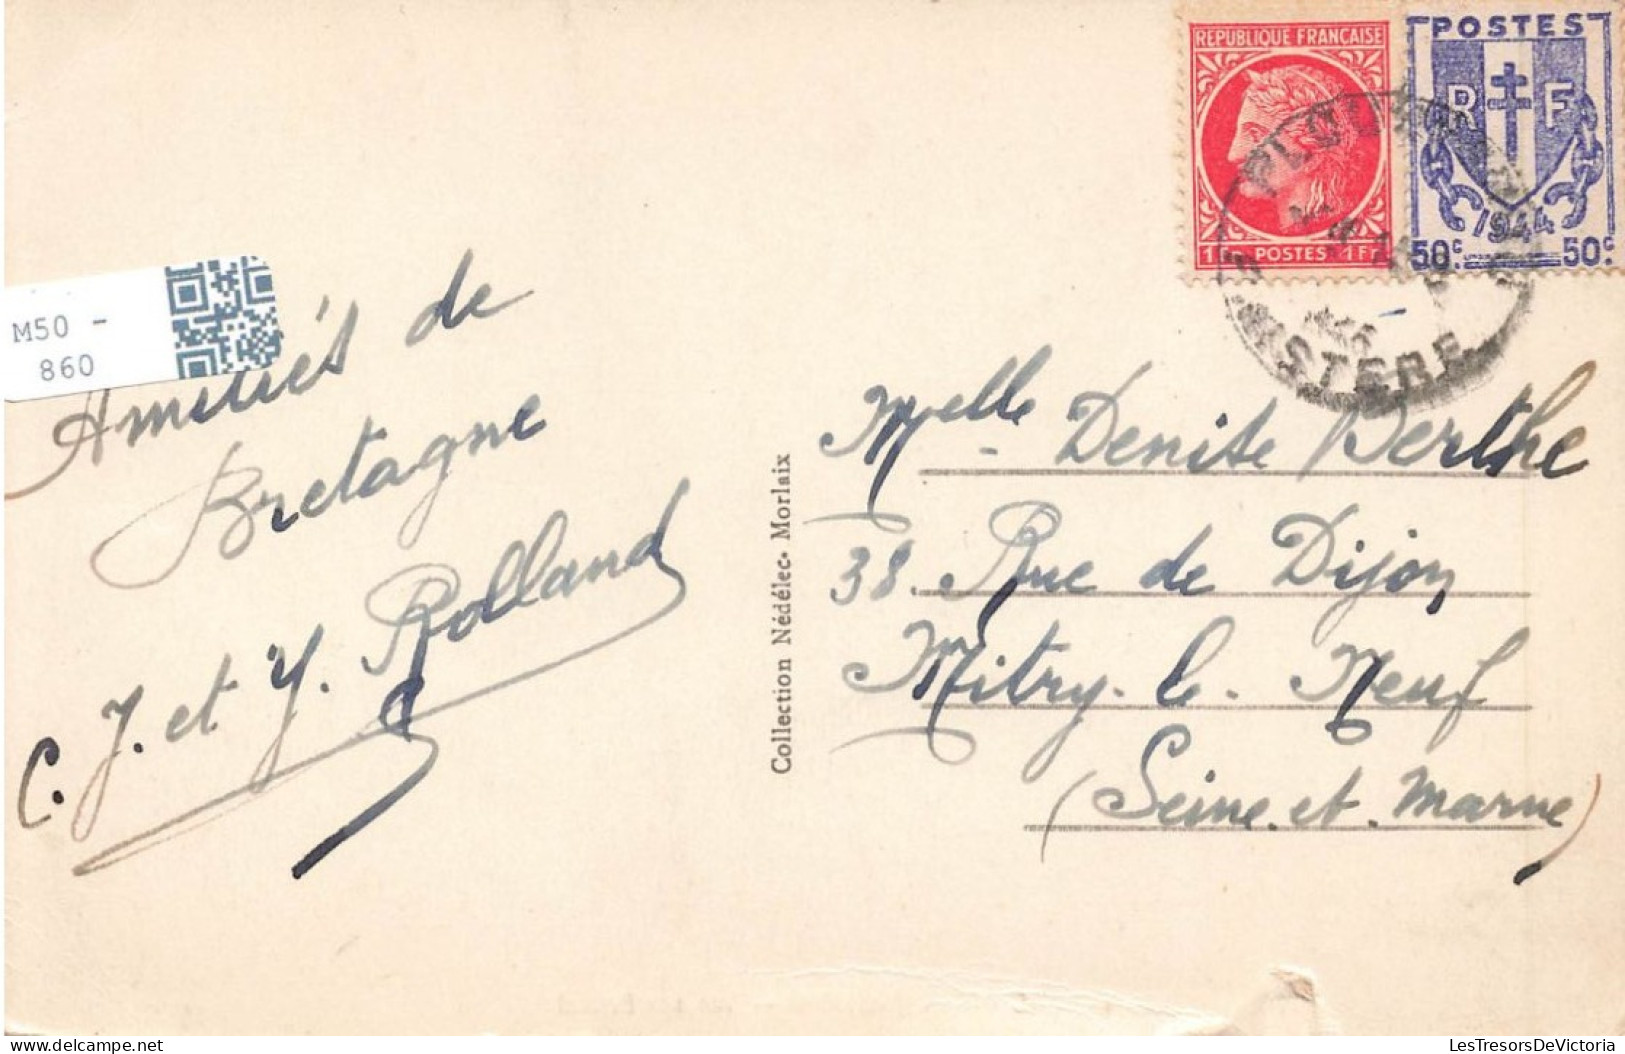 REPUBLIQUE FRANÇAISE
POSTES 1F
POSTES
R F
1944
50c. 50c
FINISTERE
M50 -
860
Amitiés de
Bretagne
C. J. et Y. Rolland
Collection Nédélec. Morlaix
Melle Denise Berthe
38. Rue de Dijon
Mitry-le-Neuf
(Seine.et.Marne)
delcampe.net
LesTresorsDeVictoria